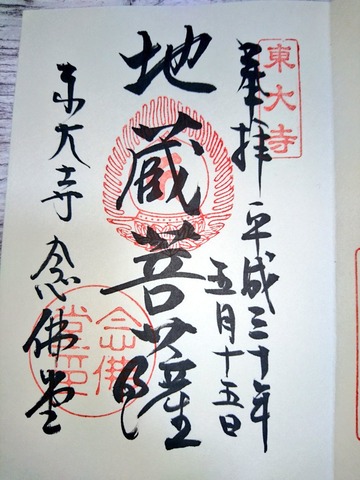 東大寺
奉拝
平成三十年
五月十五日
地蔵菩薩
東大寺 念佛堂
念佛
堂印